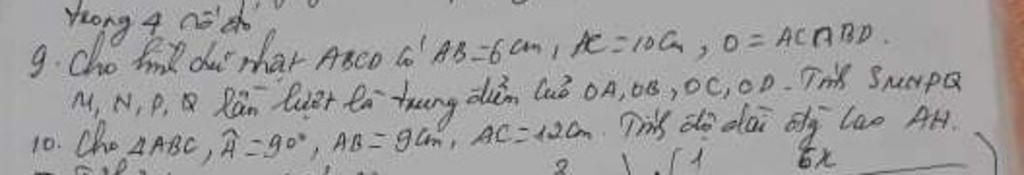 trong 4 số đó
9. Cho hình chữ nhật ABCD có AB = 6 cm, AC = 10 cm, O = AC ∩ BD.
M, N, P, Q lần lượt là trung điểm của OA, OB, OC, OD. Tính SMNPQ
10. Cho ΔABC, Â = 90°, AB = 9 cm, AC = 12 cm. Tính độ dài đg cao AH.